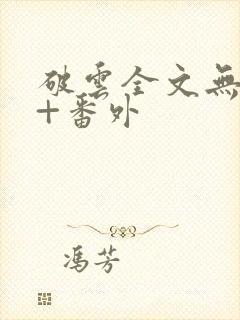 破雲全文無
+番外
馮芳